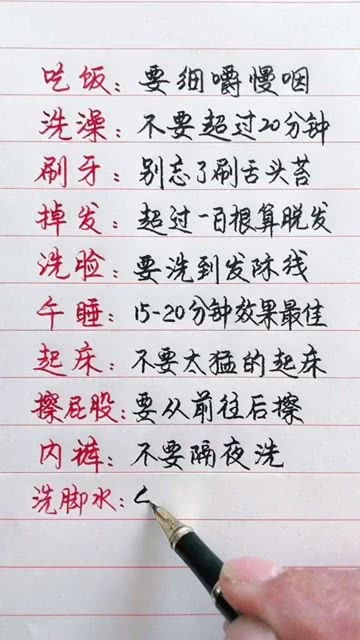 吃饭：要细嚼慢咽
洗澡：不要超过20分钟
刷牙：别忘了刷舌头苔
掉发：超过一百根算脱发
洗脸：要洗到发际线
午睡：15-20分钟效果最佳
起床：不要太猛的起床
擦屁股：要从前往后擦
内裤：不要隔夜洗
洗脚水：